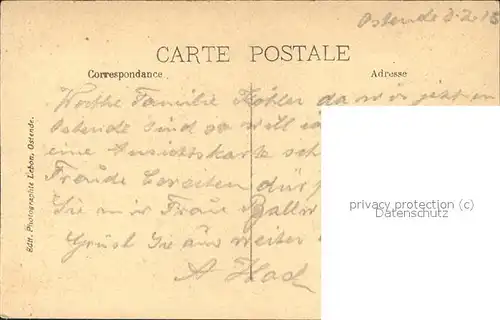 Ostende 2.2.15
CARTE POSTALE
Correspondance.
Adresse
Werthe Familie Köhler da wir jetzt in
Ostende sind so will ich
eine Ansichtskarte sch
Freude bereiten dürf
Sie mir Frau Ballw
Grüst Sie aus weiter
A Had
Edit. Photographie Lebon, Ostende.
privacy protection (c)
Datenschutz